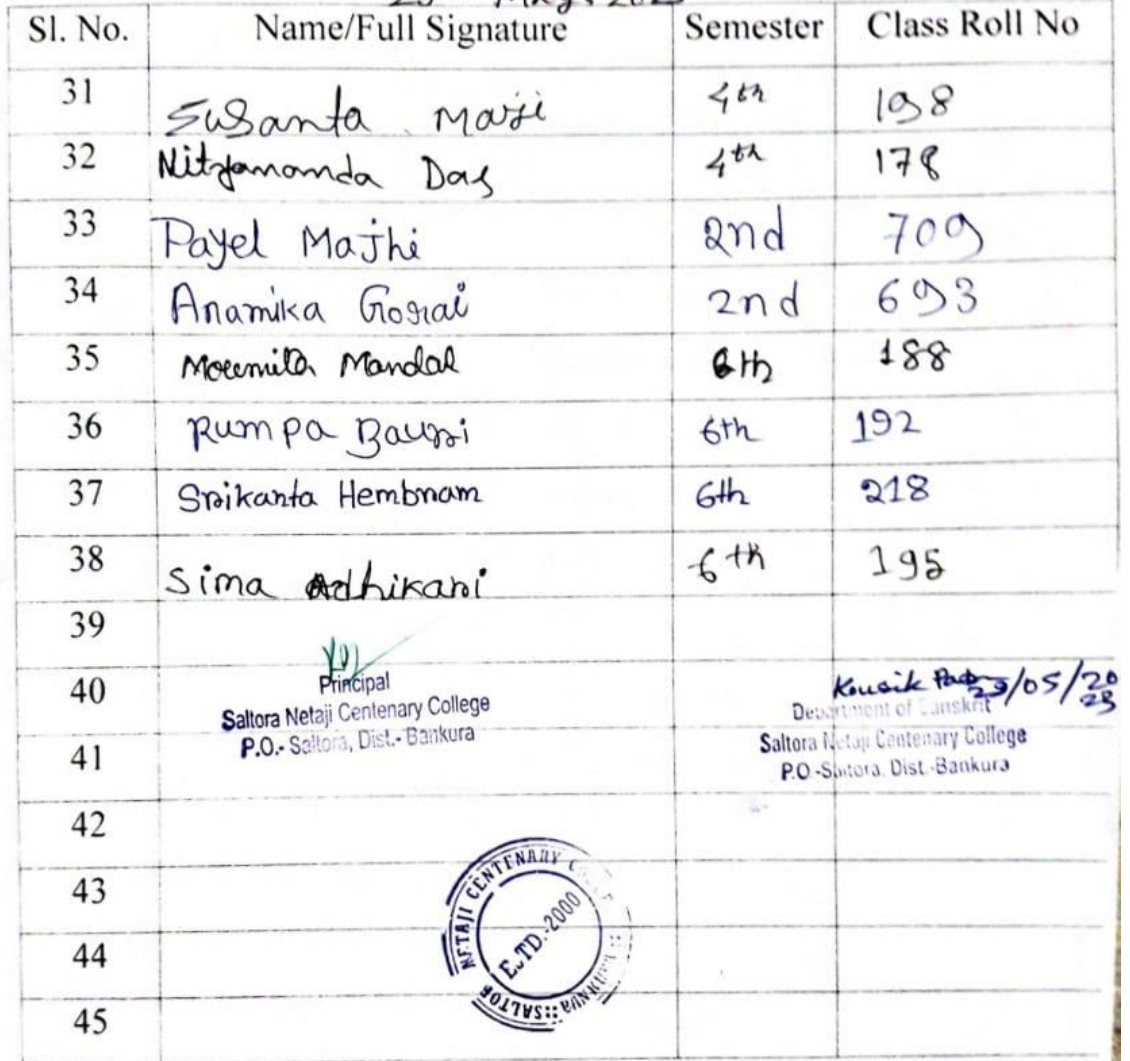 Sl. No. Name/Full Signature Semester Class Roll No
31 Susanta Maji 4th 198
32 Nityananda Das 4th 178
33 Payel Majhi 2nd 709
34 Anamika Gorai 2nd 693
35 Moumita Mandal 6th 188
36 Rumpa Bauri 6th 192
37 Srikanta Hembram 6th 218
38 Sima Adhikari 6th 195
39
40
Principal
Saltora Netaji Centenary College
P.O.- Saltora, Dist.- Bankura
Kousik 23/05/2023
Department of Sanskrit
Saltora Netaji Centenary College
P.O -Saltora. Dist.-Bankura
41
42
43
44
45
NETAJI CENTENARY
ESTD.-2000